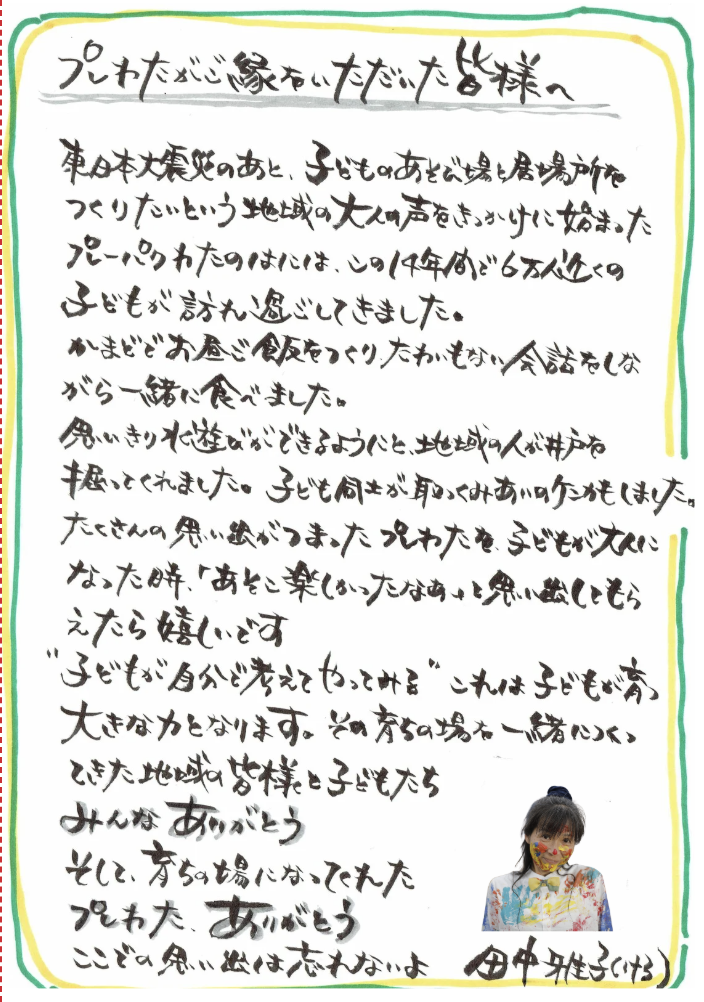 プレわたがご縁をいただいた皆様へ
東日本大震災のあと、子どものあそび場と居場所を
つくりたいという地域の大人の声をきっかけに始まった
プレーパークわたのはには、この14年間で6万人近くの
子どもが訪れ過ごしてきました。
かまどでお昼ご飯をつくり、たわいもない会話をしな
がら一緒に食べました。
思いきり水遊びができるようにと、地域の人が井戸を
掘ってくれました。子ども同士が取っくみあいのケンカもしました。
たくさんの思い出がつまったプレわたを、子どもが大人に
なった時、「あそこ楽しかったなぁ」と思い出してもら
えたら嬉しいです
"子どもが自分で考えてやってみる"これは子どもが育つ
大きな力となります。その育ちの場を一緒につくっ
てきた地域の皆様と子どもたち
みんなありがとう
そして、育ちの場になってくれた
プレわた、ありがとう
ここでの思い出は忘れないよ 田中雅子(いける)